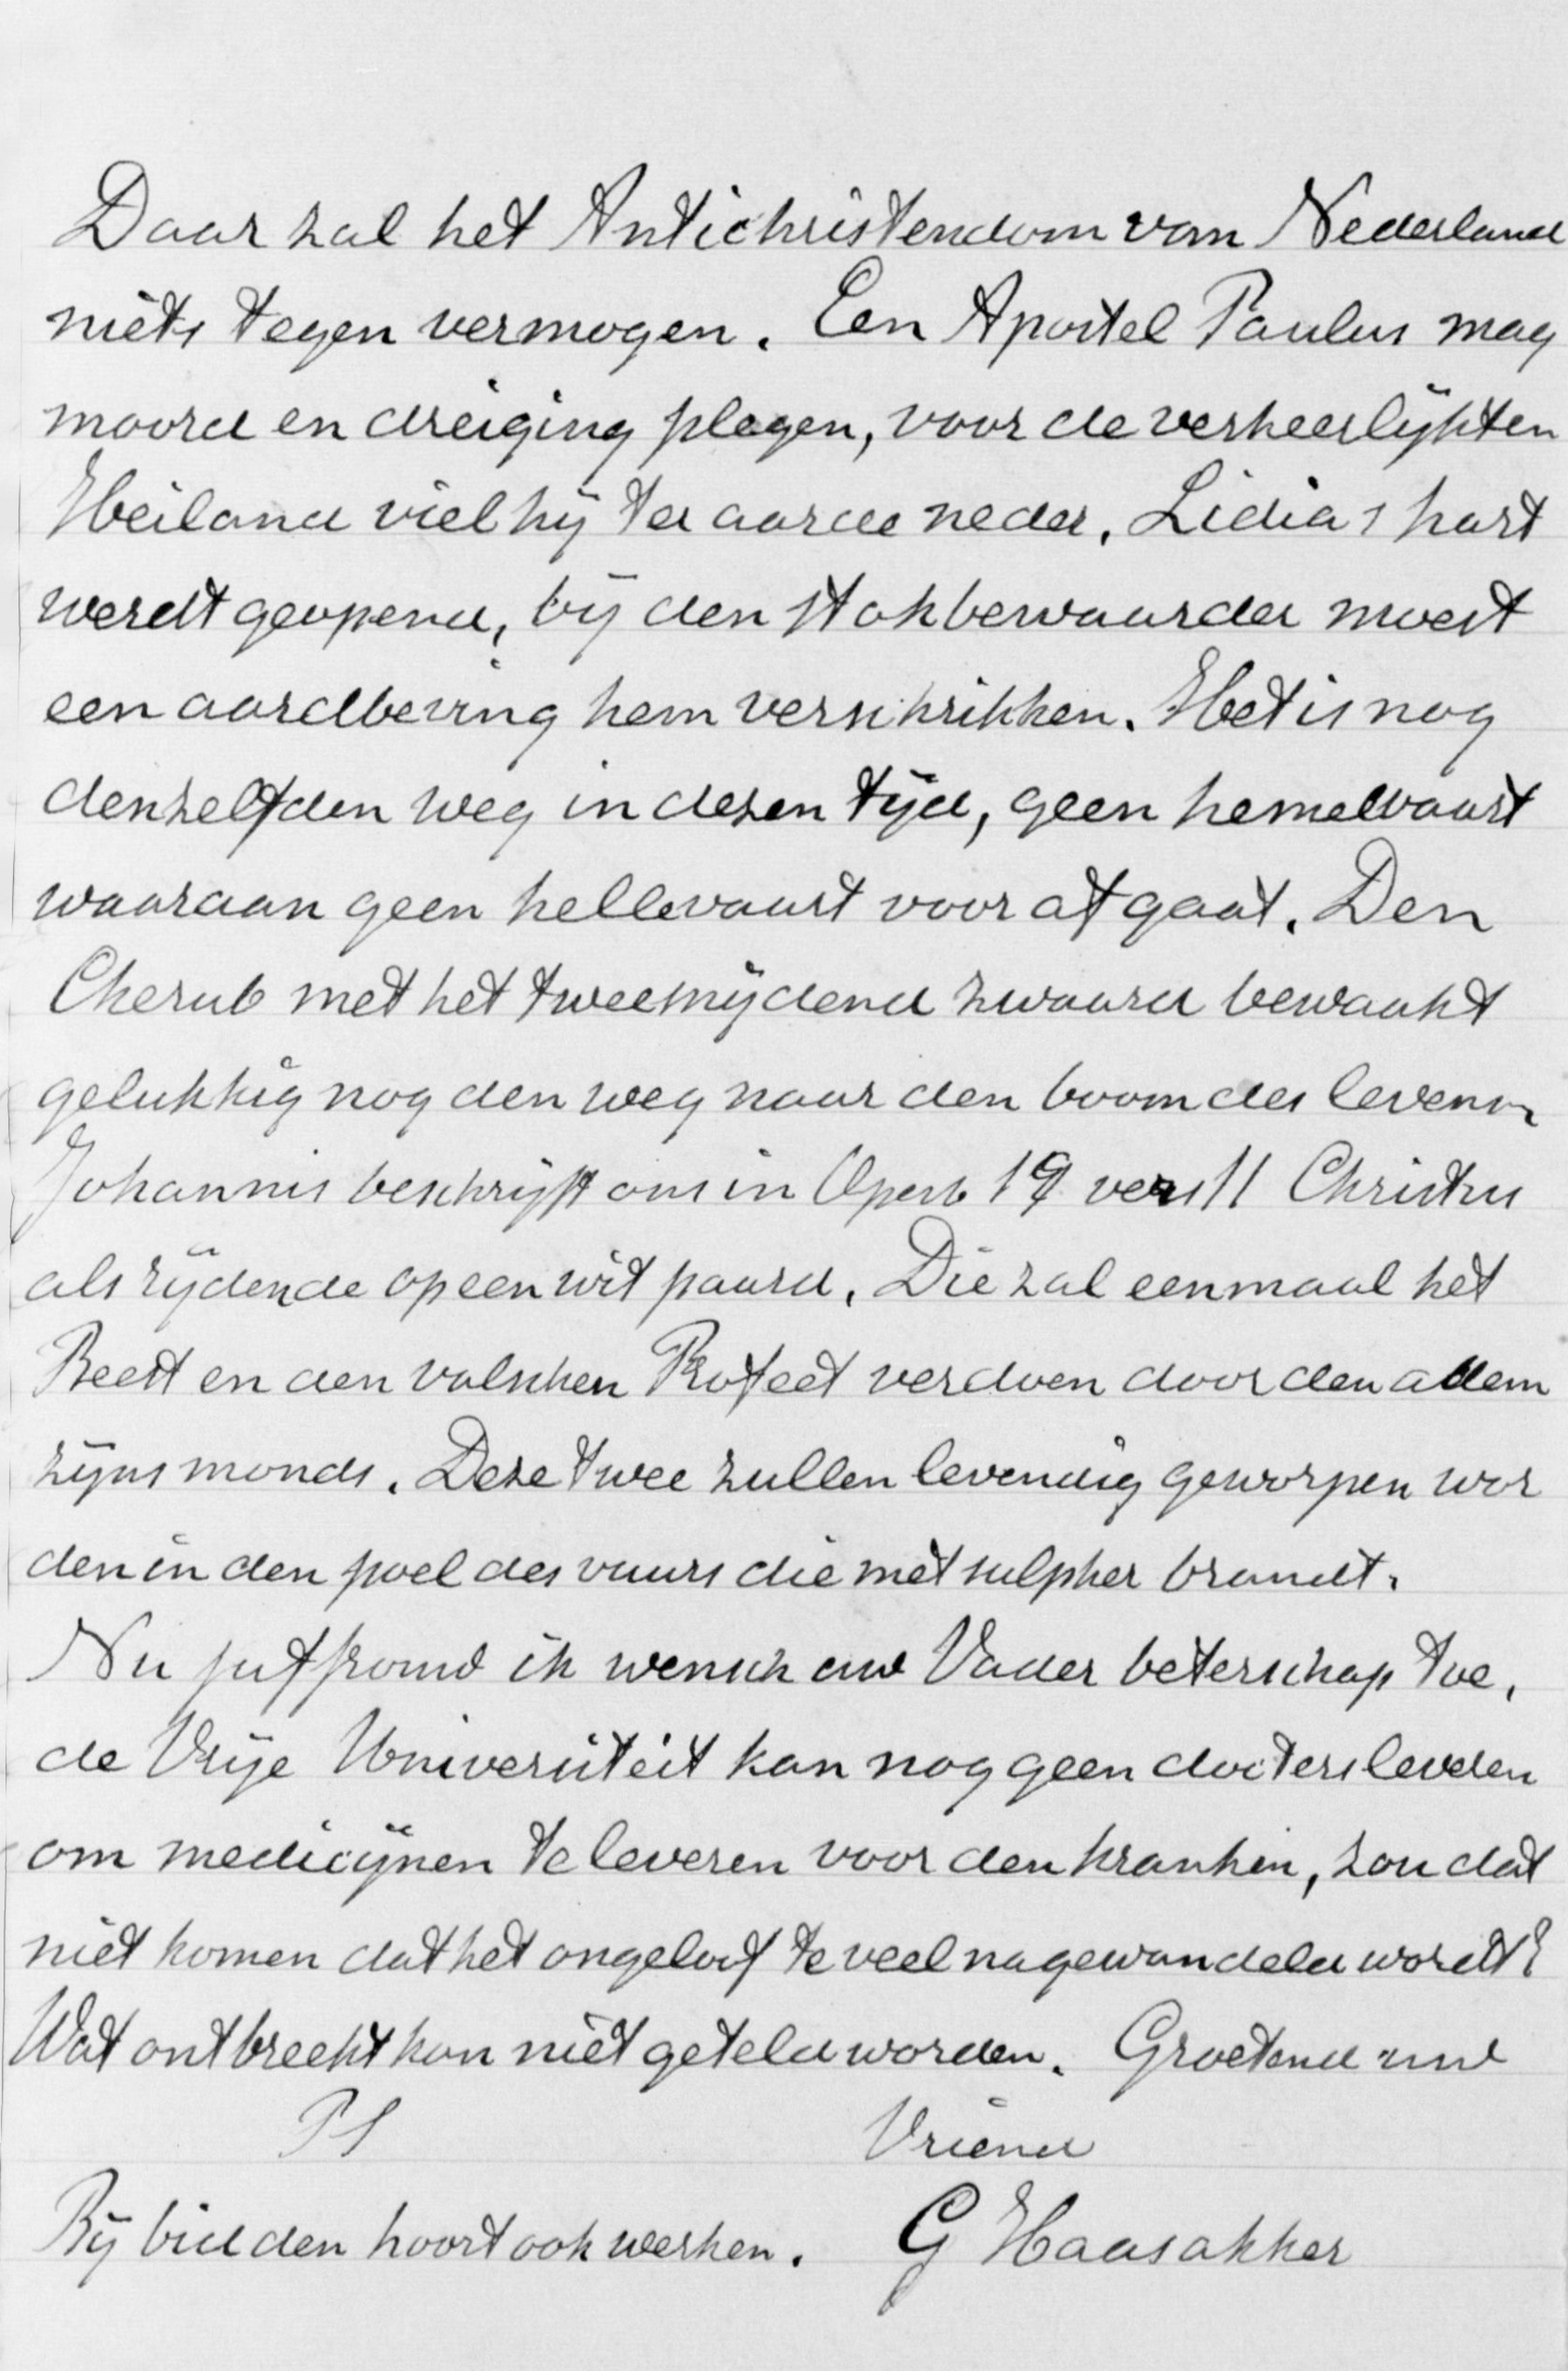 Daar zal het Antichristendom van Nederland
niets tegen vermogen. Een Apostel Paulus mag
moord en dreiging plegen, voor de verheerlijkten
Heiland viel hij ter aarde neder, Lidia s hart
werdt geopend, bij den stokbewaarder moest
een aardbeving hem verschrikken. Het is nog
denzelfden weg in dezen tijd, geen hemelvaart
waaraan geen hellevaart voor af gaat. Den
Cherub met het tweesnijdend zwaard bewaakt
gelukkig nog den weg naar den boom des levens
Johannis beschrijft ons in Openb 19 vers 11 Christus
als rijdende op een wit paard, Die zal eenmaal het
Beest en den valschen Profeet verdoen door den adem
zijns monds. Deze twee zullen levendig geworpen wor
den in den poel des vuurs die met sulpher brandt.
Nu juffrouw ik wensch uw Vader beterschap toe,
de Vrije Universiteit kan nog geen docters leveren
om medicijnen te leveren voor den kranken, zou dat
niet komen dat het ongeloof te veel nagewandeld wordt?
Wat ontbreekt kan niet geteld worden. Groetend uw
PS Vriend
Bij bidden hoort ook werken. G Haasakker